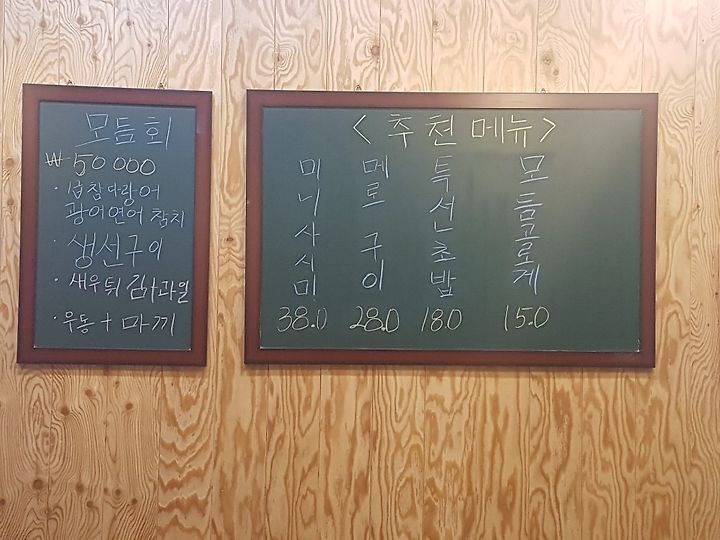 모듬회
₩50000
· 참다랑어
광어연어 참치
· 생선구이
· 새우튀김사과일
· 우동 + 마끼
<추천메뉴>
미니사시미
38.0
메로구이
28.0
특선초밥
18.0
모듬고로케
15.0